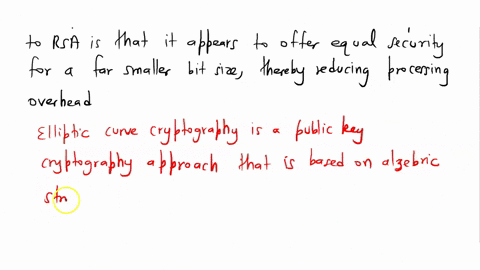 to RSA is that it appears to offer equal security
for a far smaller bit size, thereby reducing processing
overhead
Elliptic curve cryptography is a public key
cryptography approach that is based on algebric
stn